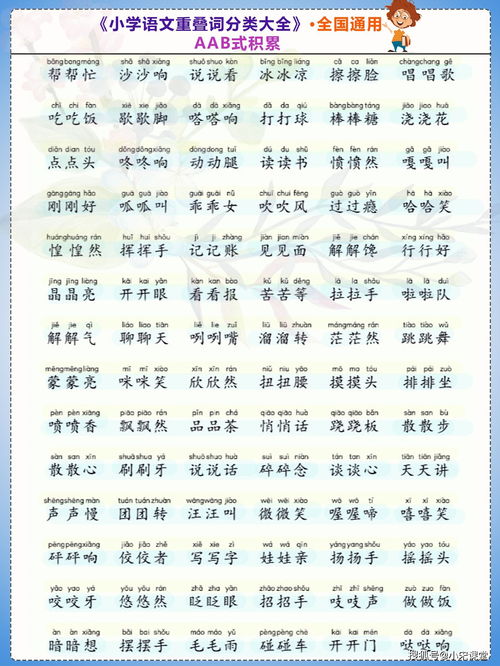 《小学语文重叠词分类大全》·全国通用
AAB式积累
bāng bang máng shā shā xiǎng shuō shuō kàn bīng bīng liáng cā ca liǎn chàng chang gē
帮帮忙 沙沙响 说说看 冰冰凉 擦擦脸 唱唱歌
chī chi fàn xiē xie jiǎo dā dā xiǎng dǎ da qiú bàng bàng táng jiāo jiao huā
吃吃饭 歇歇脚 嗒嗒响 打打球 棒棒糖 浇浇花
diǎn dian tóu dōng dōng xiǎng dòng dong tuǐ dú du shū fèn fèn rán gā gā jiào
点点头 咚咚响 动动腿 读读书 愤愤然 嘎嘎叫
gāng gāng hǎo guā guā jiào guāi guāi nǚ chuī chui fēng guò guo yǐn hā hā xiào
刚刚好 呱呱叫 乖乖女 吹吹风 过过瘾 哈哈笑
huáng huáng rán huī hui shǒu jì ji zhàng jiàn jian miàn jiě jie chán xíng xíng hǎo
惶惶然 挥挥手 记记账 见见面 解解馋 行行好
jīng jīng liàng kāi kai yǎn kàn kan bào kǔ kǔ děng lā la shǒu lā lā duì
晶晶亮 开开眼 看看报 苦苦等 拉拉手 啦啦队
jiě jie qì liáo liao tiān liě lie zuǐ liū liū zhuàn máng máng rán tiào tiao wǔ
解解气 聊聊天 咧咧嘴 溜溜转 茫茫然 跳跳舞
mēng mēng liàng mī mī xiào xīn xīn rán niǔ niu yāo mō mo tóu pái pái zuò
蒙蒙亮 咪咪笑 欣欣然 扭扭腰 摸摸头 排排坐
pèn pèn xiāng piāo piāo rán pǐn pin chá qiāo qiāo huà qiāo qiāo bǎn sàn san bù
喷喷香 飘飘然 品品茶 悄悄话 跷跷板 散散步
sàn san xīn shuā shua yá shuō shuo huà suì suì niàn tán tan xīn tiān tiān jiǎng
散散心 刷刷牙 说说话 碎碎念 谈谈心 天天讲
shēng shēng màn tuán tuán zhuàn wāng wāng jiào wēi wēi xiào wō wō tí xī xī xiào
声声慢 团团转 汪汪叫 微微笑 喔喔啼 嘻嘻笑
pēng pēng xiǎng jiǎo jiǎo zhě xiě xie zì wá wa qīn yáng yang shǒu yáo yao tóu
砰砰响 佼佼者 写写字 娃娃亲 扬扬手 摇摇头
yǎo yao yá yōu yōu rán zhǎ zha yǎn zhāo zhao shǒu zhī zhī shēng zuò zuo fàn
咬咬牙 悠悠然 眨眨眼 招招手 吱吱声 做做饭
àn àn xiǎng bǎi bai shǒu máo máo yǔ pèng pèng chē kāi kai mén dā dā xiǎng
暗暗想 摆摆手 毛毛雨 碰碰车 开开门 哒哒响
搜狐号@小宋课堂